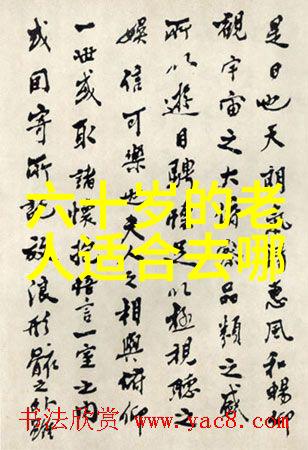 是日也天朗氣清惠風和暢仰
觀宇宙之大俯察品類之盛
所以遊目騁懷足以極視聽之
娛信可樂也夫人之相與俯仰
一世或取諸懷抱悟言一室之內
或因寄所託放浪形骸之外雖
六十岁的老
人适合去哪
书法欣赏 www.yac8.com